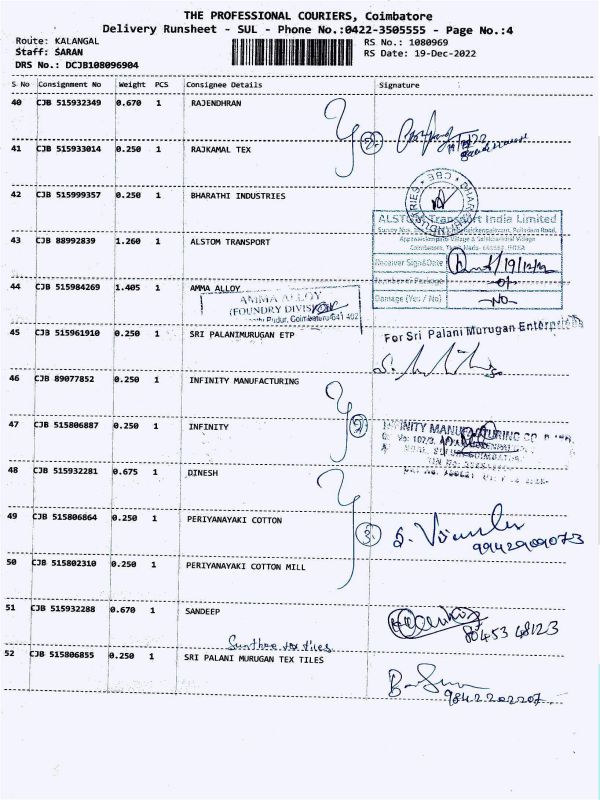 THE PROFESSIONAL COURIERS, Coimbatore
Delivery Runsheet - SUL - Phone No.:0422-3505555 - Page No.:4
Route: KALANGAL
Staff: SARAN
DRS No.: DCJB108096904
RS No.: 1080969
RS Date: 19-Dec-2022
S No Consignment No Weight PCS Consignee Details Signature
40 CJB 515932349 0.670 1 RAJENDHRAN
2
41 CJB 515933014 0.250 1 RAJKAMAL TEX
42 CJB 515999357 0.250 1 BHARATHI INDUSTRIES
ALSTOM Transport India Limited
43 CJB 88992839 1.260 1 ALSTOM TRANSPORT
Receiver Sign&Date 19/12/22
Number of Package -01-
Damage (Yes / No) -No-
44 CJB 515984269 1.405 1 AMMA ALLOY
AMMA ALLOY
(FOUNDRY DIVISION)
Pudur, Coimbatore 641 402
45 CJB 515961910 0.250 1 SRI PALANIMURUGAN ETP
For Sri Palani Murugan Enterprises
46 CJB 89077852 0.250 1 INFINITY MANUFACTURING
2
47 CJB 515806887 0.250 1 INFINITY
INFINITY MANUFACTURING CO
48 CJB 515932281 0.675 1 DINESH
49 CJB 515806864 0.250 1 PERIYANAYAKI COTTON
3
9942909073
50 CJB 515802310 0.250 1 PERIYANAYAKI COTTON MILL
51 CJB 515932288 0.670 1 SANDEEP
80453 48123
52 CJB 515806855 0.250 1 SRI PALANI MURUGAN TEX TILES
9842202207